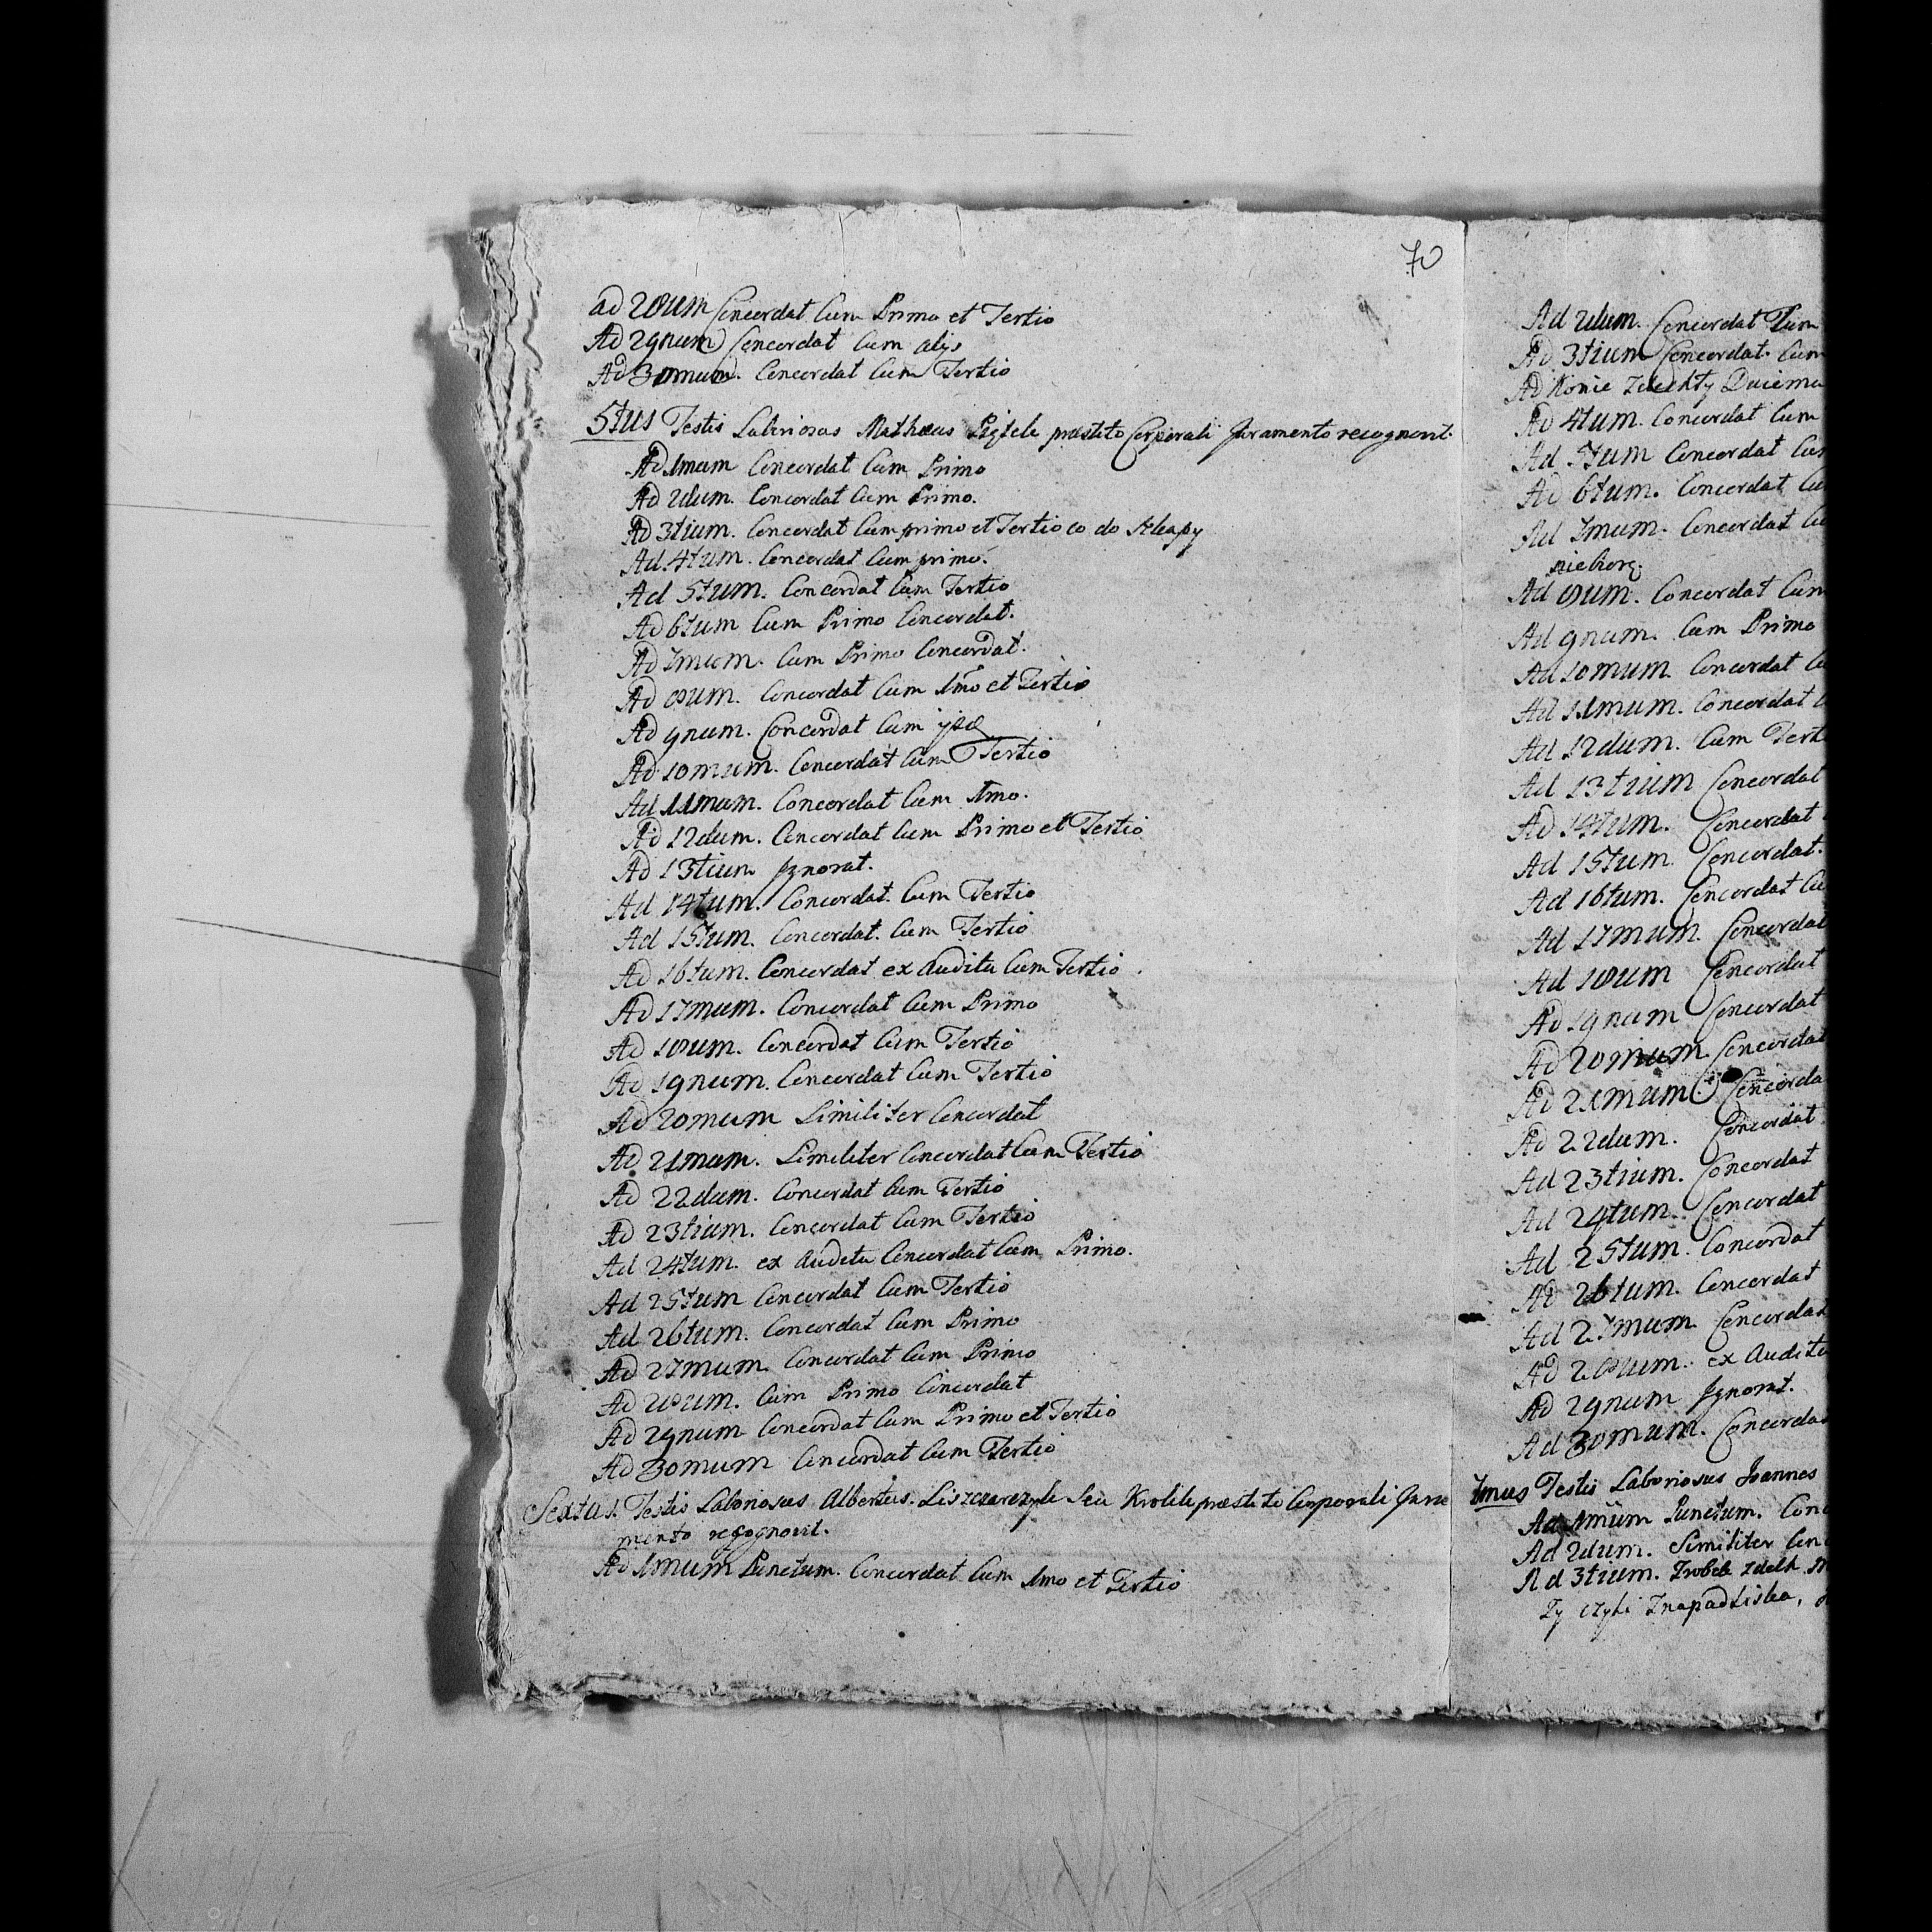 70
ad 28um Concordat Cum Primo et Tertio
Ad 29num Concordat Cum alijs
Ad 30mum. Concordat Cum Tertio
5tus Testis Laboriosus Mathæus præstito Corporali Juramento recognovit.
Ad 1mum Concordat Cum Primo
Ad 2dum. Concordat Cum Primo.
Ad 3tium. Concordat Cum primo et Tertio co do
Ad 4tum. Concordat Cum primo.
Ad 5tum. Concordat Cum Tertio
Ad 6tum Cum Primo Concordat.
Ad 7mum. Cum Primo Concordat.
Ad 8um. Concordat Cum 1mo et Tertio
Ad 9num. Concordat Cum
Ad 10mum. Concordat Cum Tertio
Ad 11mum. Concordat Cum 1mo.
Ad 12dum. Concordat Cum Primo et Tertio
Ad 13tium Ignorat.
Ad 14tum. Concordat. Cum Tertio
Ad 15tum. Concordat. Cum Tertio
Ad 16tum. Concordat ex Auditu Cum Tertio.
Ad 17mum. Concordat Cum Primo
Ad 18um. Concordat Cum Tertio
Ad 19num. Concordat Cum Tertio
Ad 20mum Similiter Concordat
Ad 21mum. Similiter Concordat Cum Tertio
Ad 22dum. Concordat Cum Tertio
Ad 23tium. Concordat Cum Tertio
Ad 24tum. ex Auditu Concordat Cum Primo.
Ad 25tum Concordat Cum Tertio
Ad 26tum. Concordat Cum Primo
Ad 27mum Concordat Cum Primo
Ad 28um. Cum Primo Concordat
Ad 29num Concordat Cum Primo et Tertio
Ad 30mum Concordat Cum Tertio
Sextus. Testis Laboriosus Albertus Seu præstito Corporali Jura
mento recognovit.
Ad 1mum Punctum. Concordat Cum 1mo et Tertio
Ad 2dum. Concordat Cum
Ad 3tium Concordat. Cum
Ad Konie
Ad 4tum. Concordat Cum
Ad 5tum Concordat
Ad 6tum. Concordat
Ad 7mum. Concordat
Ad 8um. Concordat Cum
Ad 9num. Cum Primo
Ad 10mum Concordat
Ad 11mum. Concordat
Ad 12dum. Cum
Ad 13tium Concordat
Ad 14tum. Concordat
Ad 15tum. Concordat.
Ad 16tum. Concordat
Ad 17mum. Concordat
Ad 18um Concordat
Ad 19num Concordat
Ad 20mum. Concordat
Ad 21mum
Ad 22dum. Concordat
Ad 23tium. Concordat
Ad 24tum. Concordat
Ad 25tum. Concordat
Ad 26tum. Concordat
Ad 27mum Concordat
Ad 28um. ex Auditu
Ad 29num Ignorat.
Ad 30mum.
7mus Testis Laboriosus Joannes
Ad 1mum Punctum.
Ad 2dum. Similiter
Ad 3tium.